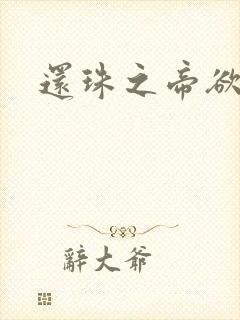 還珠之帝欲
辭大爺